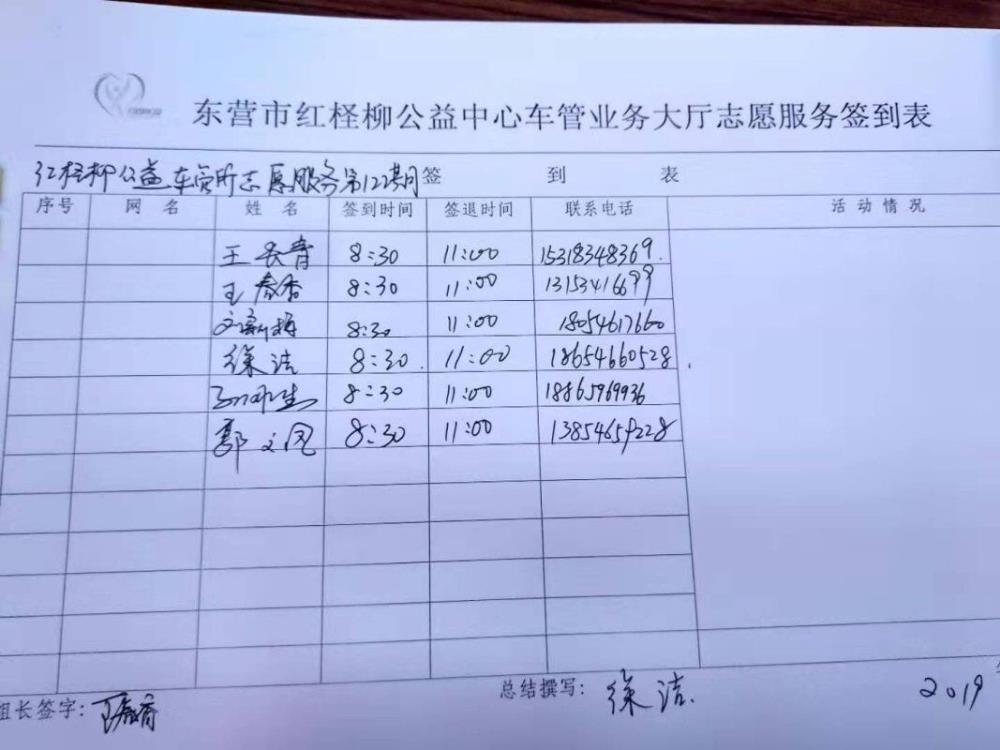 东营市红柽柳公益中心车管业务大厅志愿服务签到表
红柽柳公益车管所志愿服务第122期 签 到 表
序号 网 名 姓 名 签到时间 签退时间 联系电话 活 动 情 况
王长青 8:30 11:00 15318348369.
王春香 8:30 11:00 13153416699
8:30 11:00 18054617660
徐洁 8:30. 11:00 18654660528
8:30 11:00 18865969936
郭文凤 8:30 11:00 13854659228
组长签字: 总结撰写: 徐洁. 2019